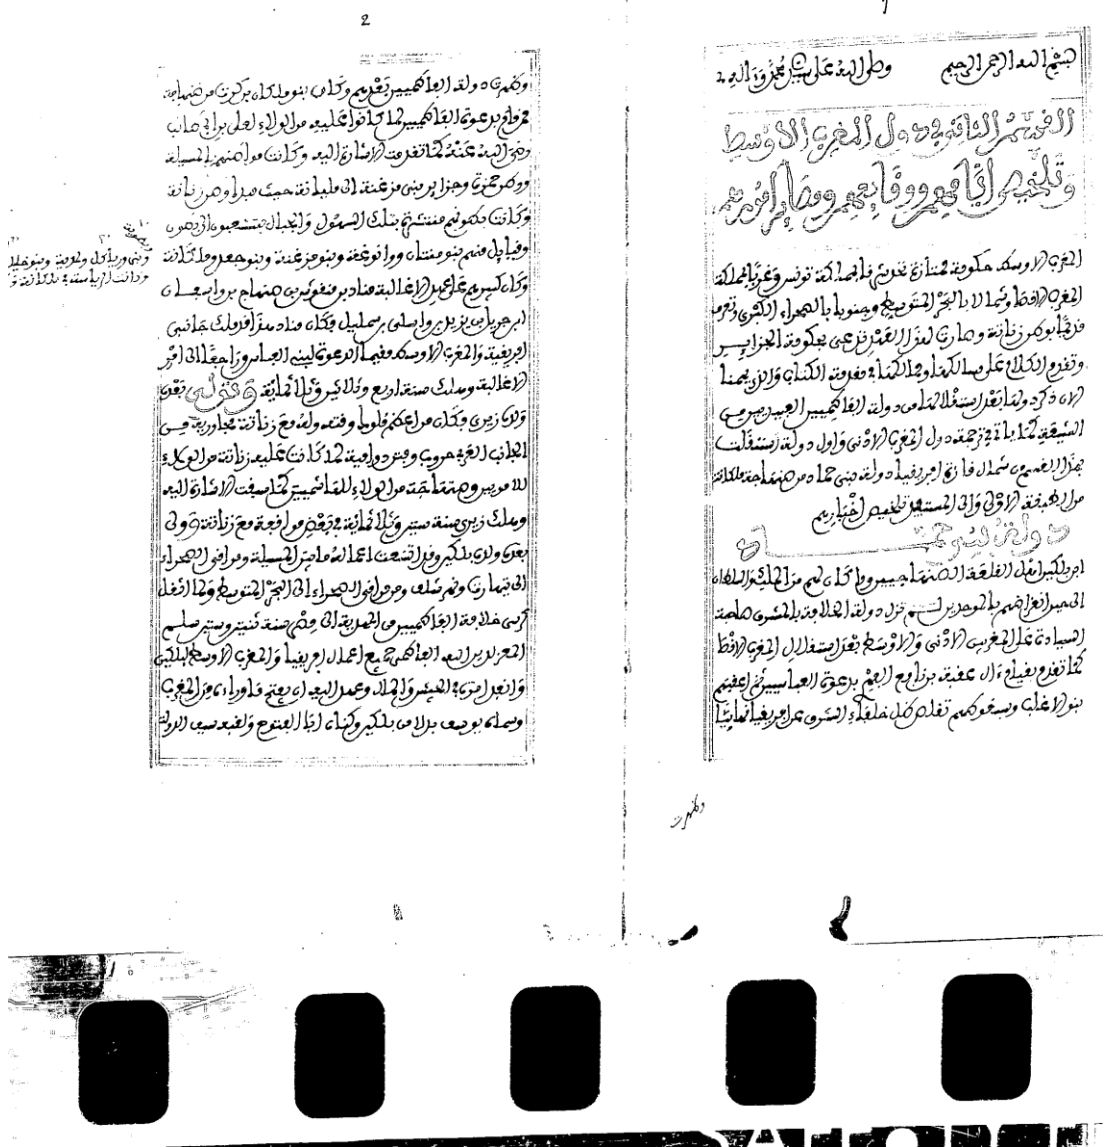 1
بسم الله الرحمن الرحيم وصلى الله على سيدنا محمد وءاله
القسم الثاني في دول المغرب الاوسط
وتلخيص ايامهم ووقايعهم ومصاير امورهم
المغرب الاوسط حكومة ممتازة تحدها شرقا مملكة تونس وغربا مملكة
المغرب الاقصى وشمالا بالبحر المتوسط وجنوبا بالصحراء الكبرى وتعرف
قديما بوطن زناتة وصارت لهذا العهد تدعى بحكومة الجزاير
وتقدم الكلام على مسالكها وممالكها في مقدمة الكتاب والذي يهمنا
الان ذكر دولها بعد استقلالها من دولة الفاطميين العبيديين من
الشيعة كما ياتي في ترجمة دول المغرب الادنى واول دولة استقلت
بهذا القسم من شمال قارة افريقيا دولة بني حماد من صنهاجة ملكانة
من الطبقة الاولى والى المستعان تلخيص اخبارهم
دولة بني حماد
ابن بلكين اهل القلعة الصنهاجيين وما كان لهم من الملك والسلطان
الى حين انقراضهم بالموحدين لم تزل دولة الخلافة بالمشرق صاحبة
السيادة على المغربين الادنى والاوسط بعد استقلال المغرب الاقصا
كما تقدم بقيام ءال عقبة بن نافع الفهري بدعوة العباسيين ثم اعقبهم
بنو الاغلب وبسقوطهم تقلص ظل خلفاء الشرق عن افريقيا نهايئا
وظهرت
2
وظهرت دولة الفاطميين بعدهم وكان بنو ملكان بن كرت من صنهاجة
قد قاموا بدعوة الفاطميين لما كانوا عليه من الولاء لعلي بن ابي طالب
رضي الله عنه كما تقدمت الاشارة اليه وكانت مواطنهم بالمسيلة
ووطن حمزة وجزاير بني مزغنة الى مليانة حيث مبدا وطن زناتة
وكانت بطونهم منتشرة بتلك السهول والجبال متشعبون الى بطون
وقبايل منهم بنو متنان ووانوغة وبنو مزغنة وبنو جعد وملكانة
وكان كبيرهم على عهد الاغالبة مناد بن منقوش بن صنهاج بن واسفان
ابن جبريل بن يزيد بن واسلى بن سمليل فكان مناد هذا قد ملك جانبي
افريقية والمغرب الاوسط مقيما الدعوة لبني العباس وراجعا الى امر
الاغالبة وهلك سنة اربع وثلاثين وثلاثمائة وتولى بعده
ولده زيري وكان من اعظم ملوكها وقعت له مع زناتة مجاوريه من
الجانب الغربي حروب وفتن دواهية لما كانت عليه زناتة من الولاء
للامويين وصنهاجة من الولاء للهاشميين كما سبقت الاشارة اليه
وهلك زيري سنة ستين وثلاثمائة في بعض مواقعه مع زناتة وولى
بعده ولده بلكين وقد اتسعت اعماله ما بين المسيلة ومن اقصى الصحراء
الى تيهارت وتمسلف ومن اقصى الصحراء الى البحر المتوسط ولما انتقل
كرسي خلافة الفاطميين من المهدية الى مصر سنة ثنتين وستين سلم
المعز لدين الله الفاطمي جميع اعمال افريقيا والمغرب الاوسط لبلكين
وانفذ امره في الجيش والمال وعهد اليه ان يفتح ما وراءه من المغرب
وسماه يوسف بدلا من بلكين وكناه ابا الفتوح ولقبه سيف الدولة